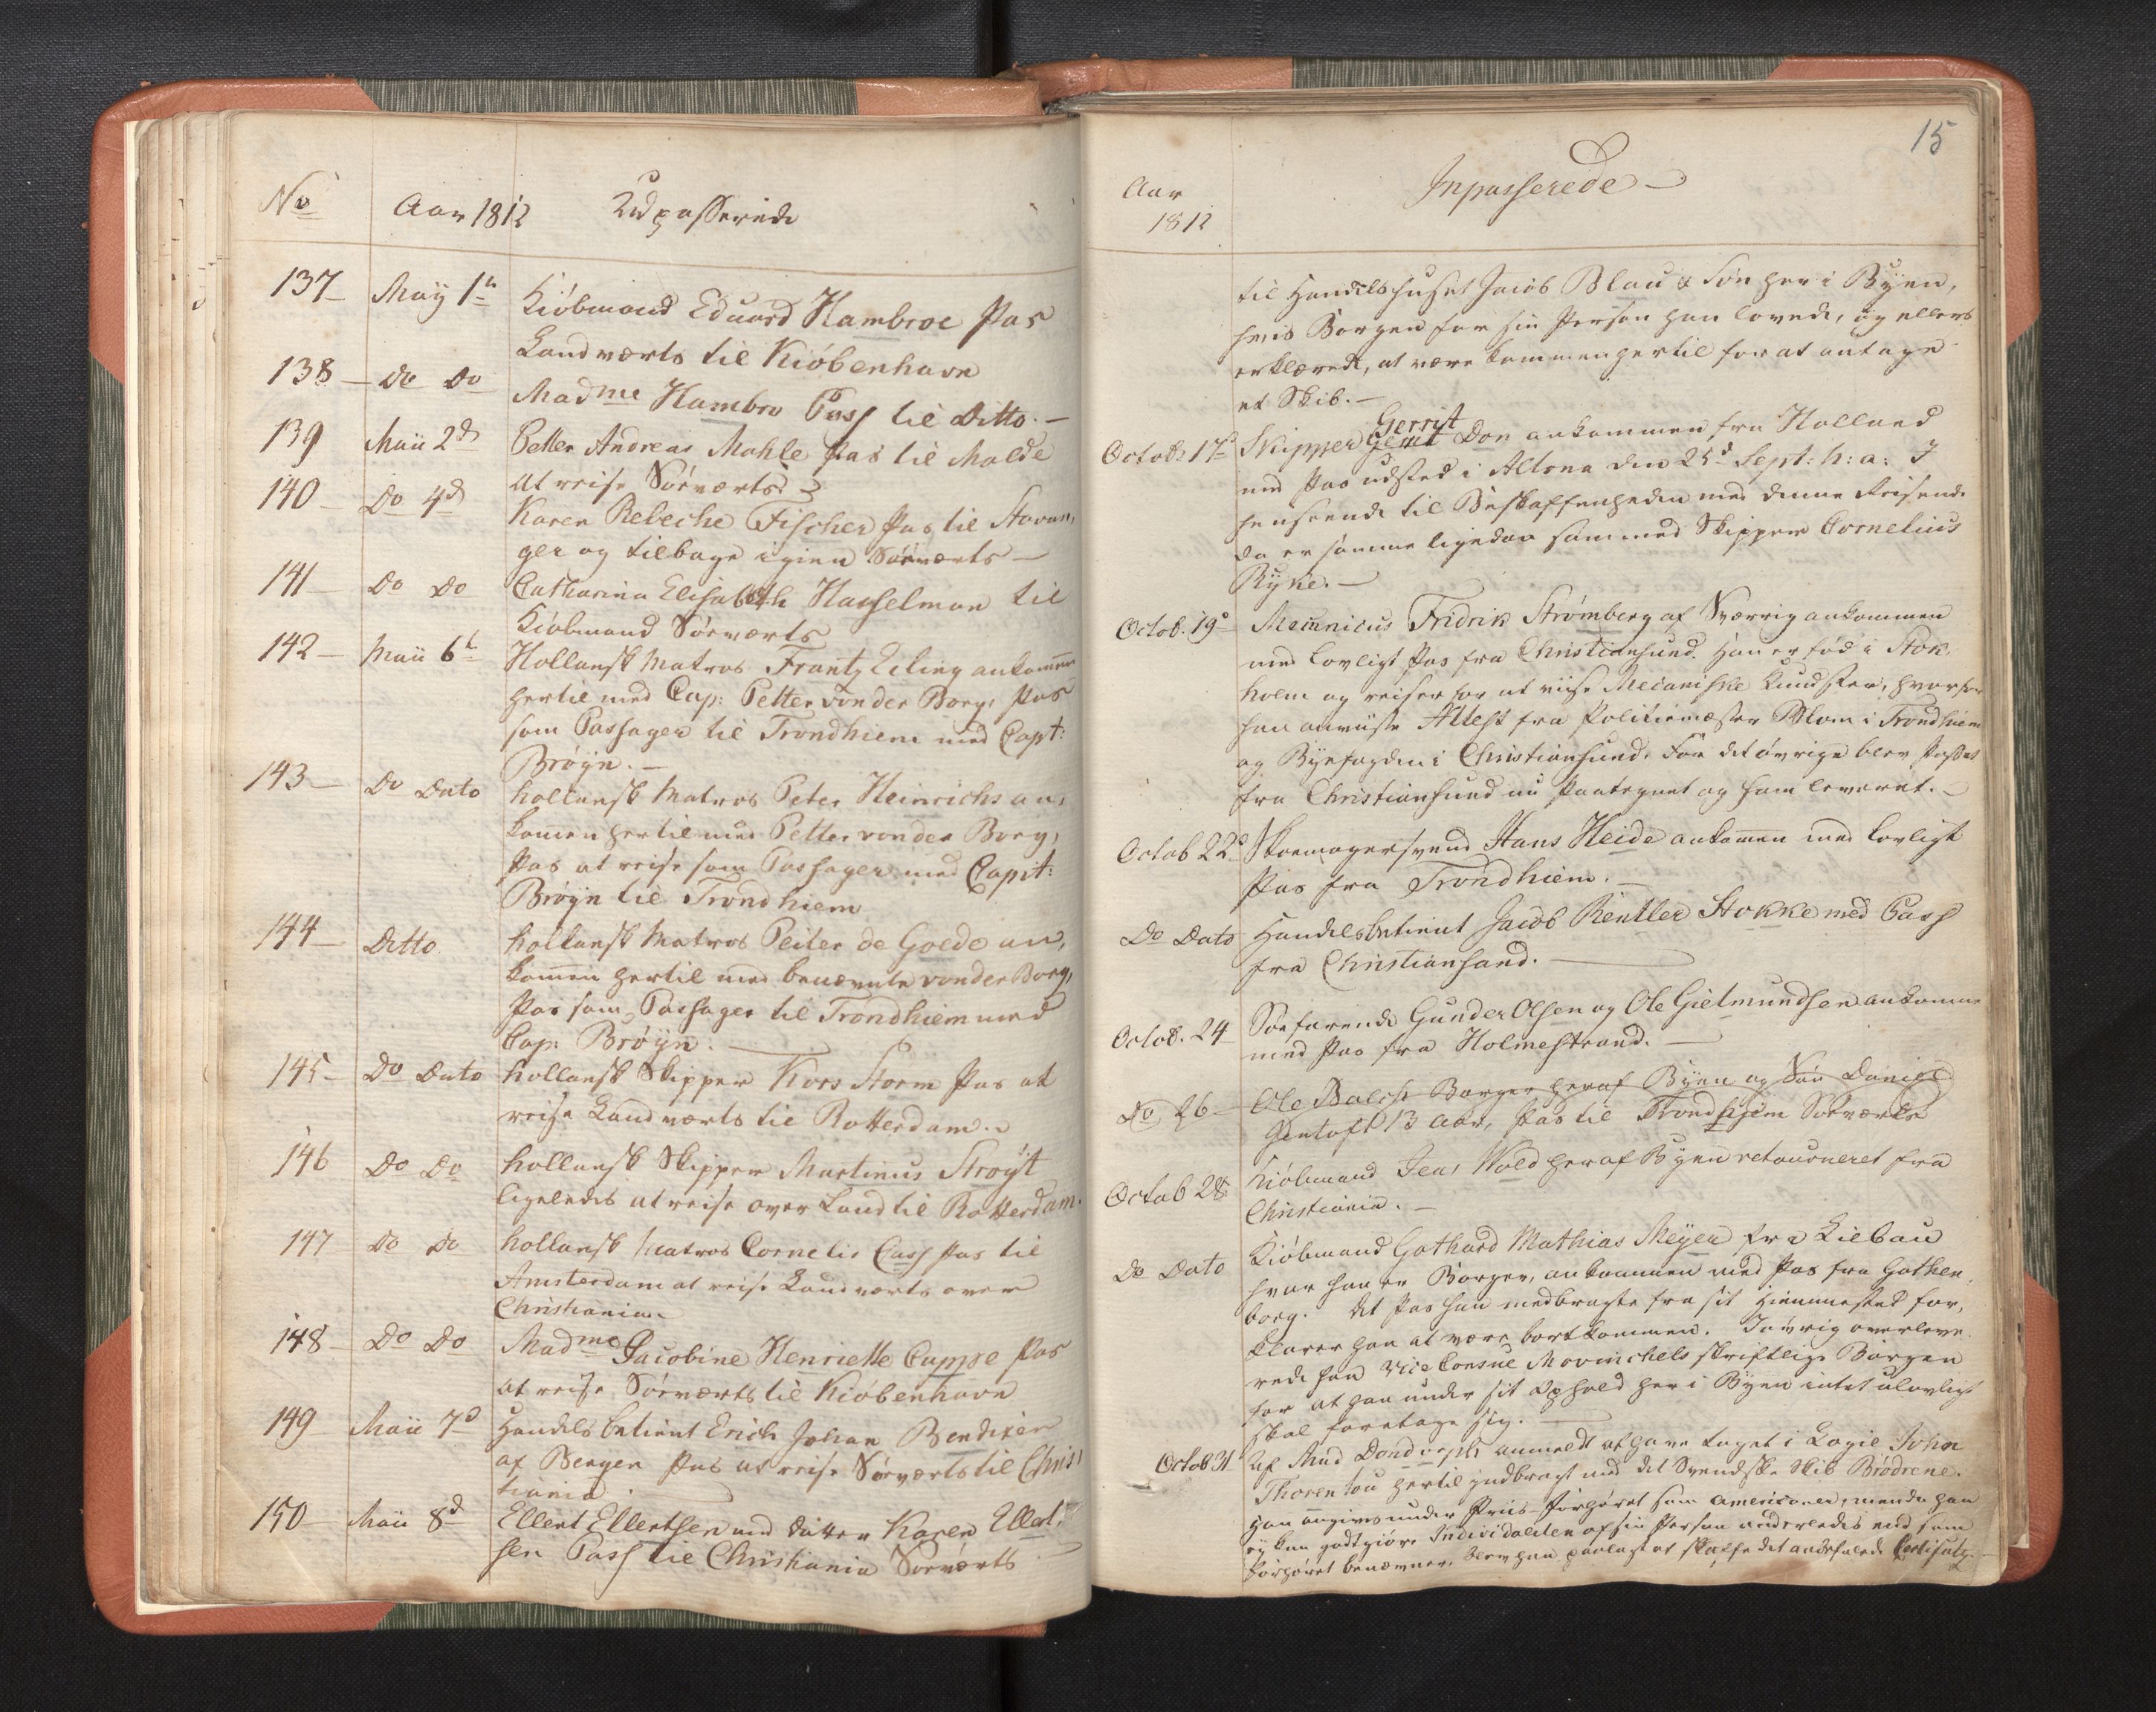 No
Aar 1812
Udpasserede
137
Maÿ 1te
Kiöbmand Eduard Hambroe Pas
Landværts til Kiöbenhavn
138
Do Do
Madme Hambro Pass til Ditto.
139
Maii 2d
Petter Andreas Mohle Pas til Molde
at reise Söeværts
140
Do 4d
Karen Rebeche Fischer Pas til Stavan,
ger og tilbage igien Söeværts
141
Do Do
Catharina Elisabeth Hasselman til
Kiöbmand Söeværts
142
Maii 6te
Hollansk Matros Frantz Eiling ankommen
hertil med Cap: Petter von der Borg, Pas
som Passager til Trondhiem med Capt:
Bröÿn.
143
Do Dato
hollansk Matros Peter Heinrichs an,
kommen hertil med Petter von der Borg,
Pas at reise som Passager med Capit:
Bröÿn til Trondhiem
144
Ditto
hollansk Matros Peiter de Goede an,
kommen hertil med benævnte von der Borg,
Pas som Passager til Trondhiem med
Cap: Bröÿn.
145
Do Dato
hollansk Skipper Kors Storm Pas at
reise Landværts til Rotterdam.
146
Do Do
hollansk Skipper Martinus Stroÿt
ligeledes at reise over Land til Rotterdam.
147
Do Do
hollansk Matros Cornelis Cass Pas til
Amsterdam at reise Landværts over
Christiania
148
Do Do
Madme Jacobine Henriette Cappe Pas
at reise Söeværts til Kiöbenhavn
149
Maii 7d
Handelsbetient Erich Johan Bendixen
af Bergen Pas at reise Söeværts til Chris,
tiania.
150
Maii 8d
Ellert Ellertsen med datter Karen Ellert,
sen Pass til Christiania Söeværts
15
Aar
1812
Inpasserede
til Handelshuset Jacob Blau & Sön her i Byen,
hvis Borgen for sin Person han lovede, og ellers
erklærede, at være kommen hertil for at antage
et Skib.
Gerrist
Octob: 17d
Skipper Don ankommen fra Holland
med Pas udsted i Altona den 25d Sept: h: a: I
henseende til Beskaffenheden med denne Reisende
da er samme ligedan som med Skipper Cornelius
Ryke.
Octob. 19d
Mecanicus Fridrik Strömberg af Sverrig ankommen
med lovligt Pas fra Christiansund. Han er föd i Stok,
holm og reiser for at viise Mecaniske Kunster, hvorfor
han anviiste Attest fra Politiemester Blom i Trondhiem
og Byefogden i Christiansund. For det övrige blev Passet
fra Christiansund nu Paategnet og ham leveret.
Octob 22d
Skomagersvend Hans Heide ankommen med lovligt
Pas fra Trondhiem.
Do Dato
Handelsbetient Jacob Rentler Stokke med Pass
fra Christiansand.
Octob. 24
Söefarende Gunder Olsen og Ole Gielmundsen ankomne
med Pas fra Holmestrand.
Do 26
Ole Balch Borger heraf Byen og Sön Daniel
Gentoft 13 Aar, Pas til Trondhiem Söeværts
Octob 28
Kiöbmand Jens Wold heraf Byen retourneret fra
Christiania.
Do Dato
Kiöbmand Gothard Mathias Meyer fra Liebau
hvor han er Borger, ankommen med Pas fra Gothen,
borg. Det Pas han medbragte fra sit Hiemmested for,
klarer han at være bortkommen. I övrig overleve,
rede han Vice Consul Movinchels skriftlige Borgen
for at han under sit Ophold her i Byen intet ulovligt
skal foretage sig.
Octob 31
Af Mad Dondorph anmeldt at have taget i Logie John
Thorenton hertil indbragt med det Svendske Skib Brödrene.
Han angives under Priis-Forhöret som Americaner, mende han
ej kan godtgiöre Individaliten af sin Person anderledes end som
Forhöret benævner, blev han paalagt at skaffe det anbefalede Certificat,